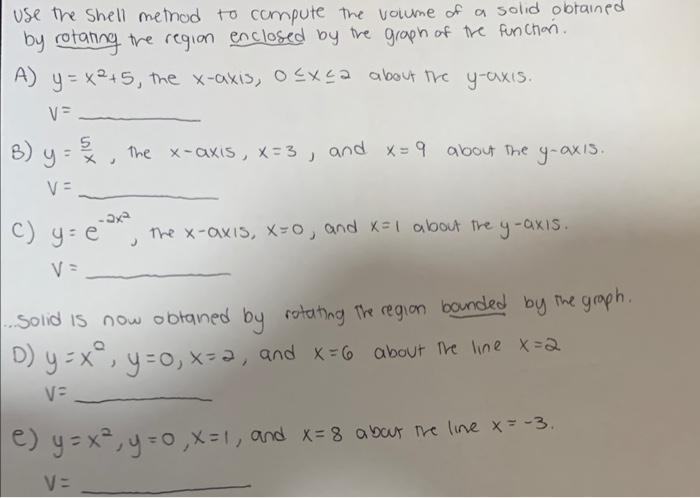 Use the Shell method to compute the volume of a solid obtained
by rotating the region enclosed by the graph of the function.
A) y = x²+5, the x-axis, 0 ≤ x ≤ 2 about the y-axis.
V = ________
B) y = 5/x, the x-axis, x = 3, and x = 9 about the y-axis.
V = ________
C) y = e^(-2x²), the x-axis, x=0, and x=1 about the y-axis.
V = ________
...Solid is now obtained by rotating the region bounded by the graph.
D) y = x², y = 0, x = 2, and x = 6 about the line x = 2
V = ________
e) y = x², y = 0, x = 1, and x = 8 about the line x = -3.
V = ________